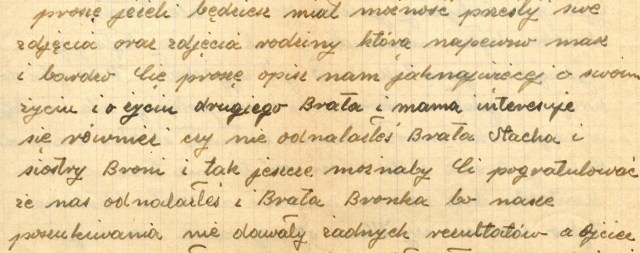 proszę jeżeli będziesz miał możność prześly swe
zdjęcia oraz zdjęcia rodziny którą napewno masz
i bardzo Cię proszę opisz nam jaknajwięcej o swoim
życiu i o życiu drugiego Brata i mama interesuje
się również czy nie odnalazłeś Brata Stacha i
siostry Broni i tak jeszcze możnaby Ci pogratulować
że nas odnalazłeś i Brata Bronka bo nasze
poszukiwania nie dawały żadnych rezultatów a Ojciec